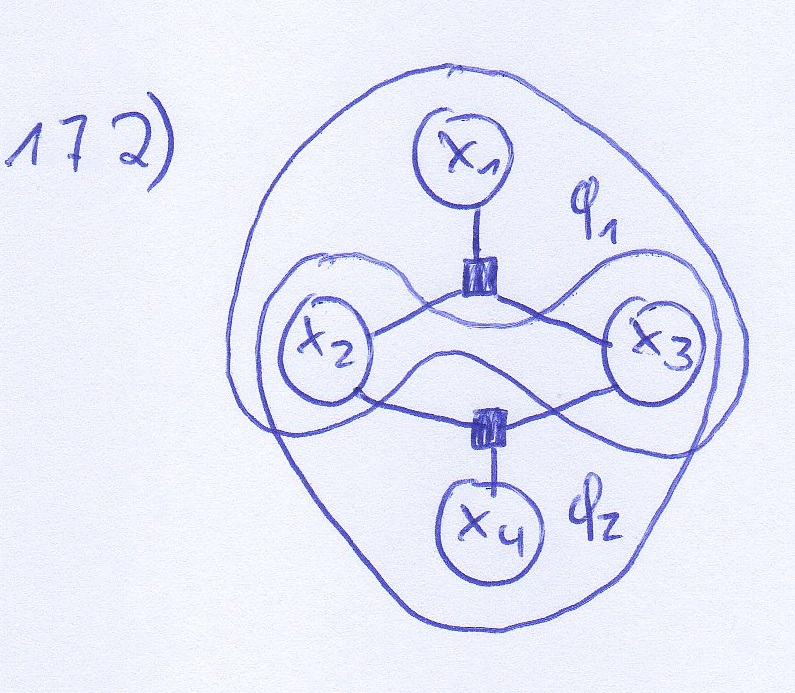 172)
x₁
φ₁
x₂
x₃
x₄
φ₂